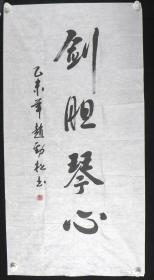 剑胆琴心
乙未年赵勁松书